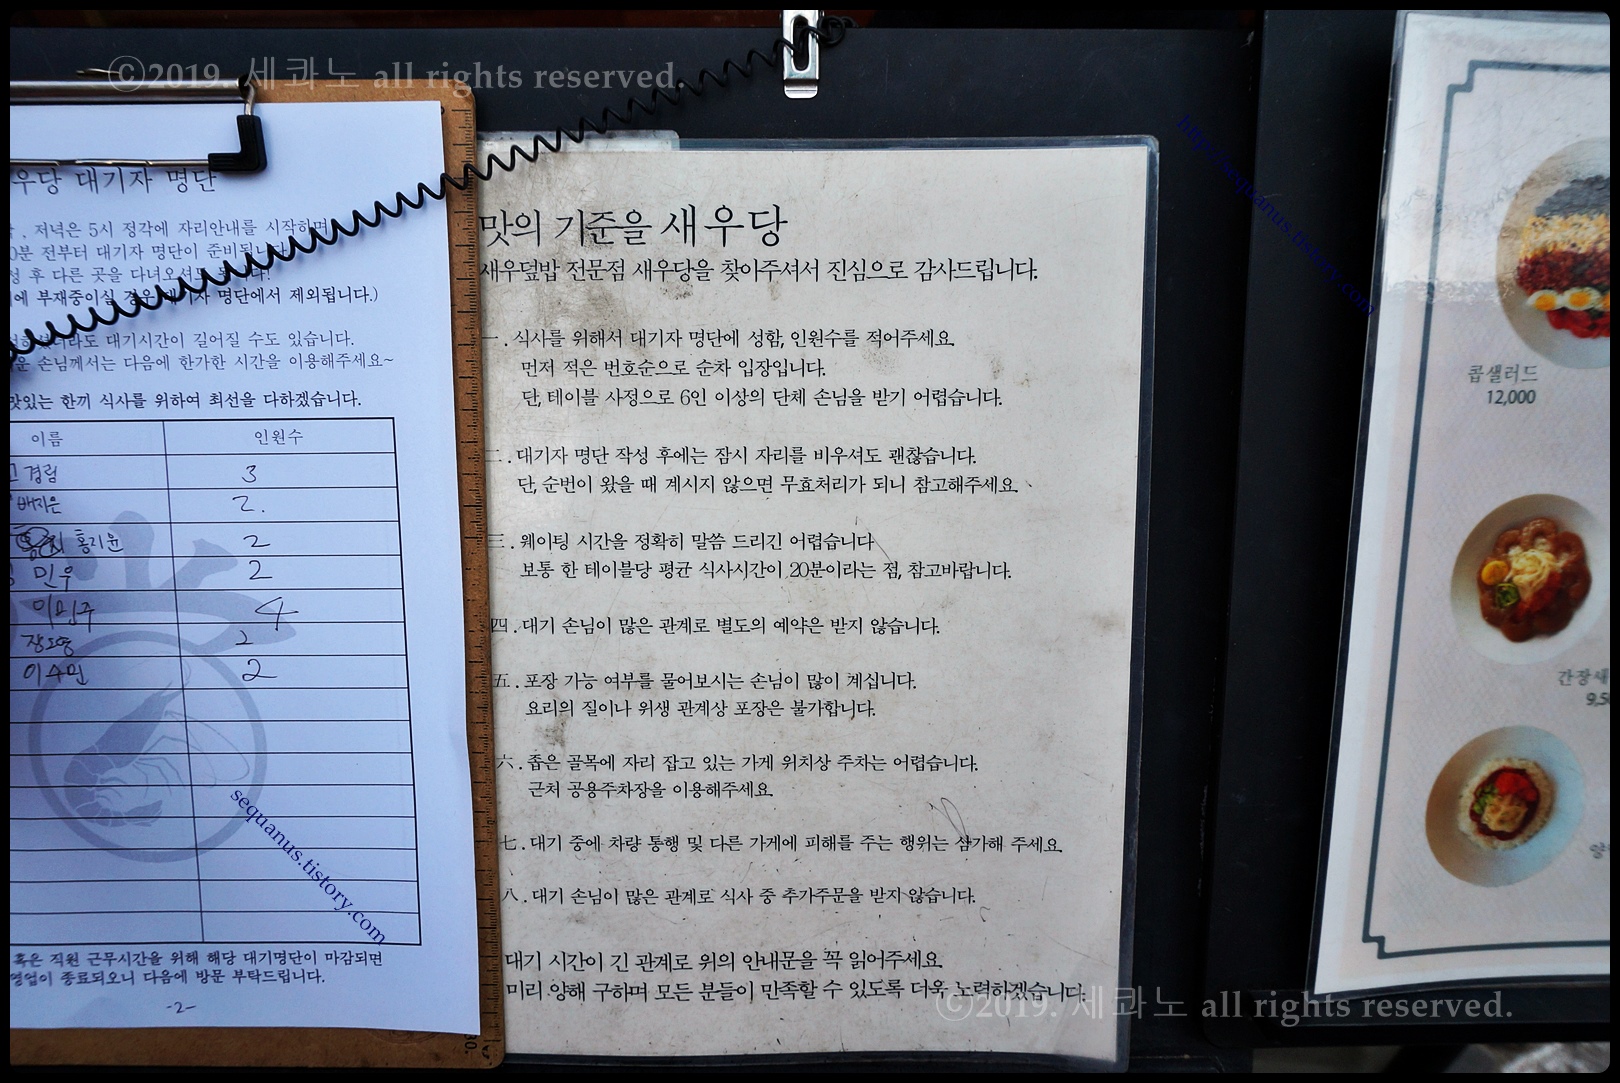 ⓒ2019. 세콰노 all rights reserved.
우당 대기자 명단
저녁은 5시 정각에 자리안내를 시작하며
0분 전부터 대기자 명단이 준비됩니다
성 후 다른 곳을 다녀오셔도 됩니다!
에 부재중이실 경우 대기자 명단에서 제외됩니다.)
라도 대기시간이 길어질 수도 있습니다.
운 손님께서는 다음에 한가한 시간을 이용해주세요~
맛있는 한끼 식사를 위하여 최선을 다하겠습니다.
이름 인원수
경림 3
배지은 2.
홍지윤 2
민우 2
이민주 4
장도영 2
이수민 2
혹은 직원 근무시간을 위해 해당 대기명단이 마감되면
영업이 종료되오니 다음에 방문 부탁드립니다.
-2-
sequanus.tistory.com
맛의 기준을 새우당
새우덮밥 전문점 새우당을 찾아주셔서 진심으로 감사드립니다.
一. 식사를 위해서 대기자 명단에 성함, 인원수를 적어주세요.
먼저 적은 번호순으로 순차 입장입니다.
단, 테이블 사정으로 6인 이상의 단체 손님을 받기 어렵습니다.
二. 대기자 명단 작성 후에는 잠시 자리를 비우셔도 괜찮습니다.
단, 순번이 왔을 때 계시지 않으면 무효처리가 되니 참고해주세요.
三. 웨이팅 시간을 정확히 말씀 드리긴 어렵습니다
보통 한 테이블당 평균 식사시간이 20분이라는 점, 참고바랍니다.
四. 대기 손님이 많은 관계로 별도의 예약은 받지 않습니다.
五. 포장 가능 여부를 물어보시는 손님이 많이 계십니다.
요리의 질이나 위생 관계상 포장은 불가합니다.
六. 좁은 골목에 자리 잡고 있는 가게 위치상 주차는 어렵습니다.
근처 공용주차장을 이용해주세요.
七. 대기 중에 차량 통행 및 다른 가게에 피해를 주는 행위는 삼가해 주세요.
八. 대기 손님이 많은 관계로 식사 중 추가주문을 받지 않습니다.
대기 시간이 긴 관계로 위의 안내문을 꼭 읽어주세요.
미리 양해 구하며 모든 분들이 만족할 수 있도록 더욱 노력하겠습니다.
http://sequanus.tistory.com
콥샐러드
12,000
간장새
9,5
ⓒ2019. 세콰노 all rights reserved.